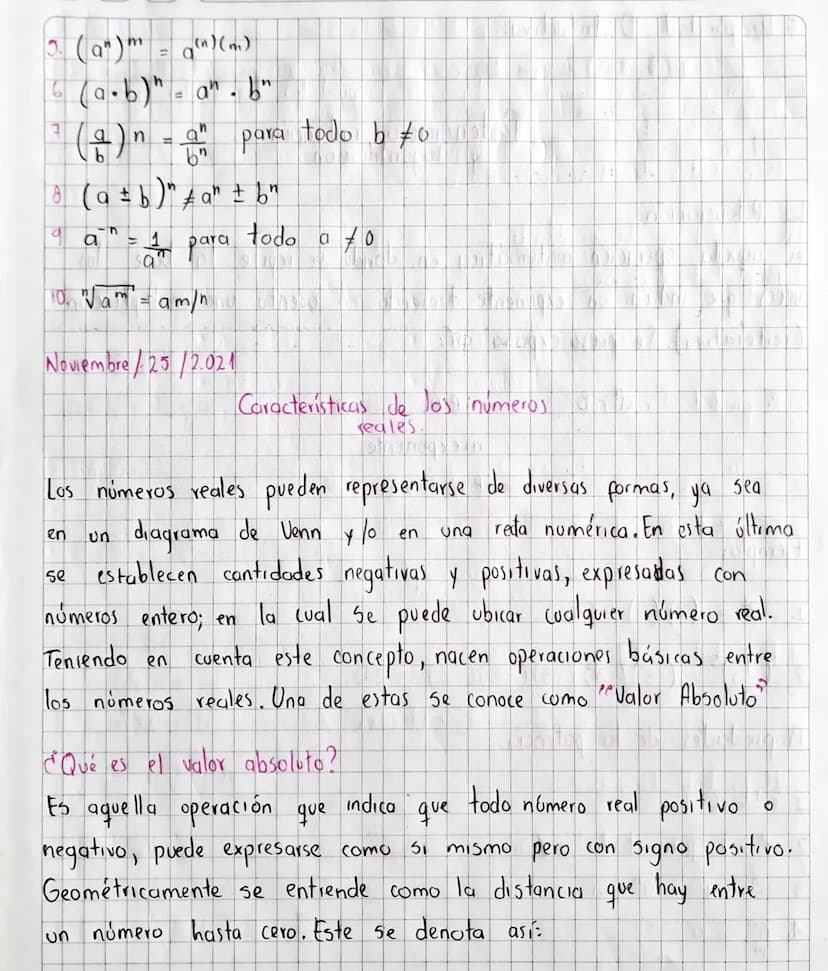 5. (aⁿ)ᵐ = a⁽ⁿ⁾⁽ᵐ⁾
6 (a·b)ⁿ = aⁿ · bⁿ
7 (a/b)ⁿ = aⁿ/bⁿ para todo b ≠ 0
8 (a ± b)ⁿ ≠ aⁿ ± bⁿ
9 a⁻ⁿ = 1/aⁿ para todo a ≠ 0
10. ⁿ√aᵐ = am/n
Noviembre/25/2.021
Características de los números
reales.
Los números reales pueden representarse de diversas formas, ya sea
en un diagrama de Venn y/o en una recta numérica. En esta última
se establecen cantidades negativas y positivas, expresadas con
números entero; en la cual se puede ubicar cualquier número real.
Teniendo en cuenta este concepto, nacen operaciones básicas entre
los números reales. Una de estas se conoce como "Valor Absoluto"
¿Qué es el valor absoluto?
Es aquella operación que indica que todo número real positivo o
negativo, puede expresarse como si mismo pero con signo positivo.
Geométricamente se entiende como la distancia que hay entre
un número hasta cero. Este se denota así: